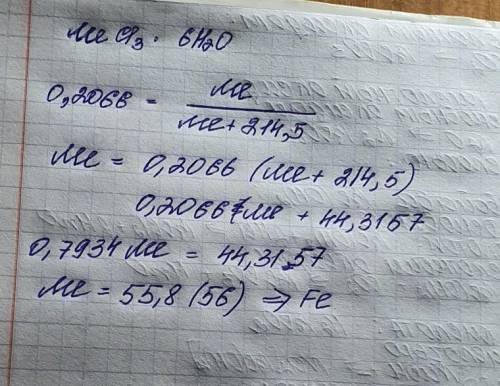 MeCl₃ · 6H₂O
0,2066 = Me / Me + 214,5
Me = 0,2066 (Me + 214,5)
0,2066 Me + 44,3157
0,7934 Me = 44,3157
Me = 55,8 (56) ⇒ Fe